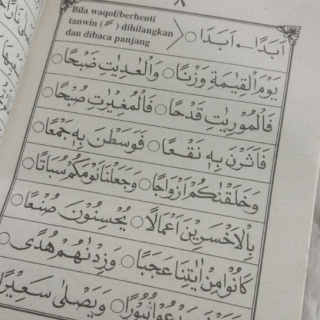 ٨
Bila waqof/berhenti
tanwin (ـً) dihilangkan
dan dibaca panjang
اَبَدًا ← اَبَدَا
يَوْمَ الْقِيٰمَةِ وَزْنًا ○ وَالْعٰدِيٰتِ ضَبْحًا ○
فَالْمُوْرِيٰتِ قَدْحًا ○ فَالْمُغِيْرٰتِ صُبْحًا ○
فَاَثَرْنَ بِهٖ نَقْعًا ○ فَوَسَطْنَ بِهٖ جَمْعًا ○
وَخَلَقْنٰكُمْ اَزْوَاجًا ○ وَجَعَلْنَا نَوْمَكُمْ سُبَاتًا ○
بِالْاَخْسَرِيْنَ اَعْمَالًا ○ يُحْسِنُوْنَ صُنْعًا ○
كَانُوْا مِنْ اٰيٰتِنَا عَجَبًا ○ وَزِدْنٰهُمْ هُدًى ○
يَدْعُوْا ثُبُوْرًا ○ وَيَصْلٰى سَعِيْرًا